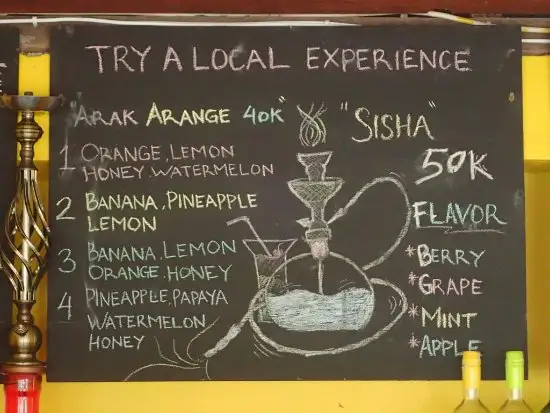 TRY A LOCAL EXPERIENCE
"ARAK ARANGE 40K"
1 ORANGE, LEMON
HONEY, WATERMELON
2 BANANA, PINEAPPLE
LEMON
3 BANANA, LEMON
ORANGE, HONEY
4 PINEAPPLE, PAPAYA
WATERMELON
HONEY
"SISHA"
50K
FLAVOR
*BERRY
*GRAPE
*MINT
*APPLE